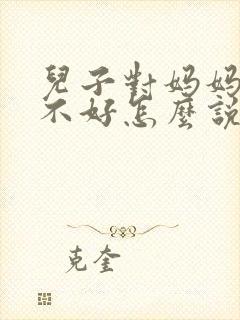 兒子對妈妈
不好怎麼說
克奎